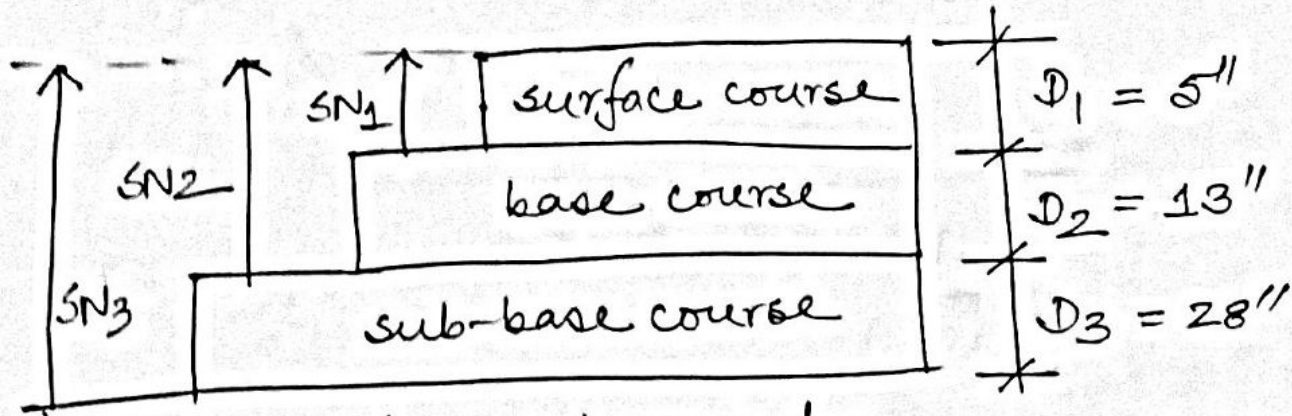 SN1 surface course D1 = 5"
SN2 base course D2 = 13"
SN3 sub-base course D3 = 28"